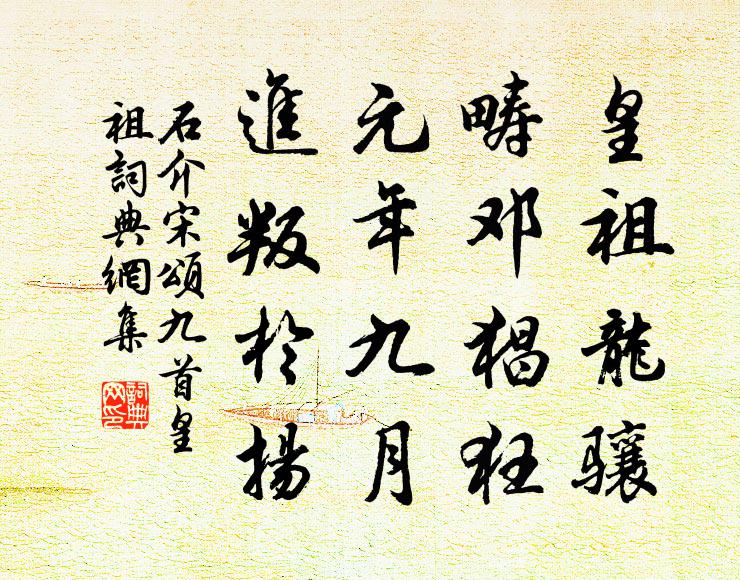 皇祖龍骧
畴邓猖狂
元年九月
進叛於揚
石介宋頌九首皇
祖詞典網集
詞典网印